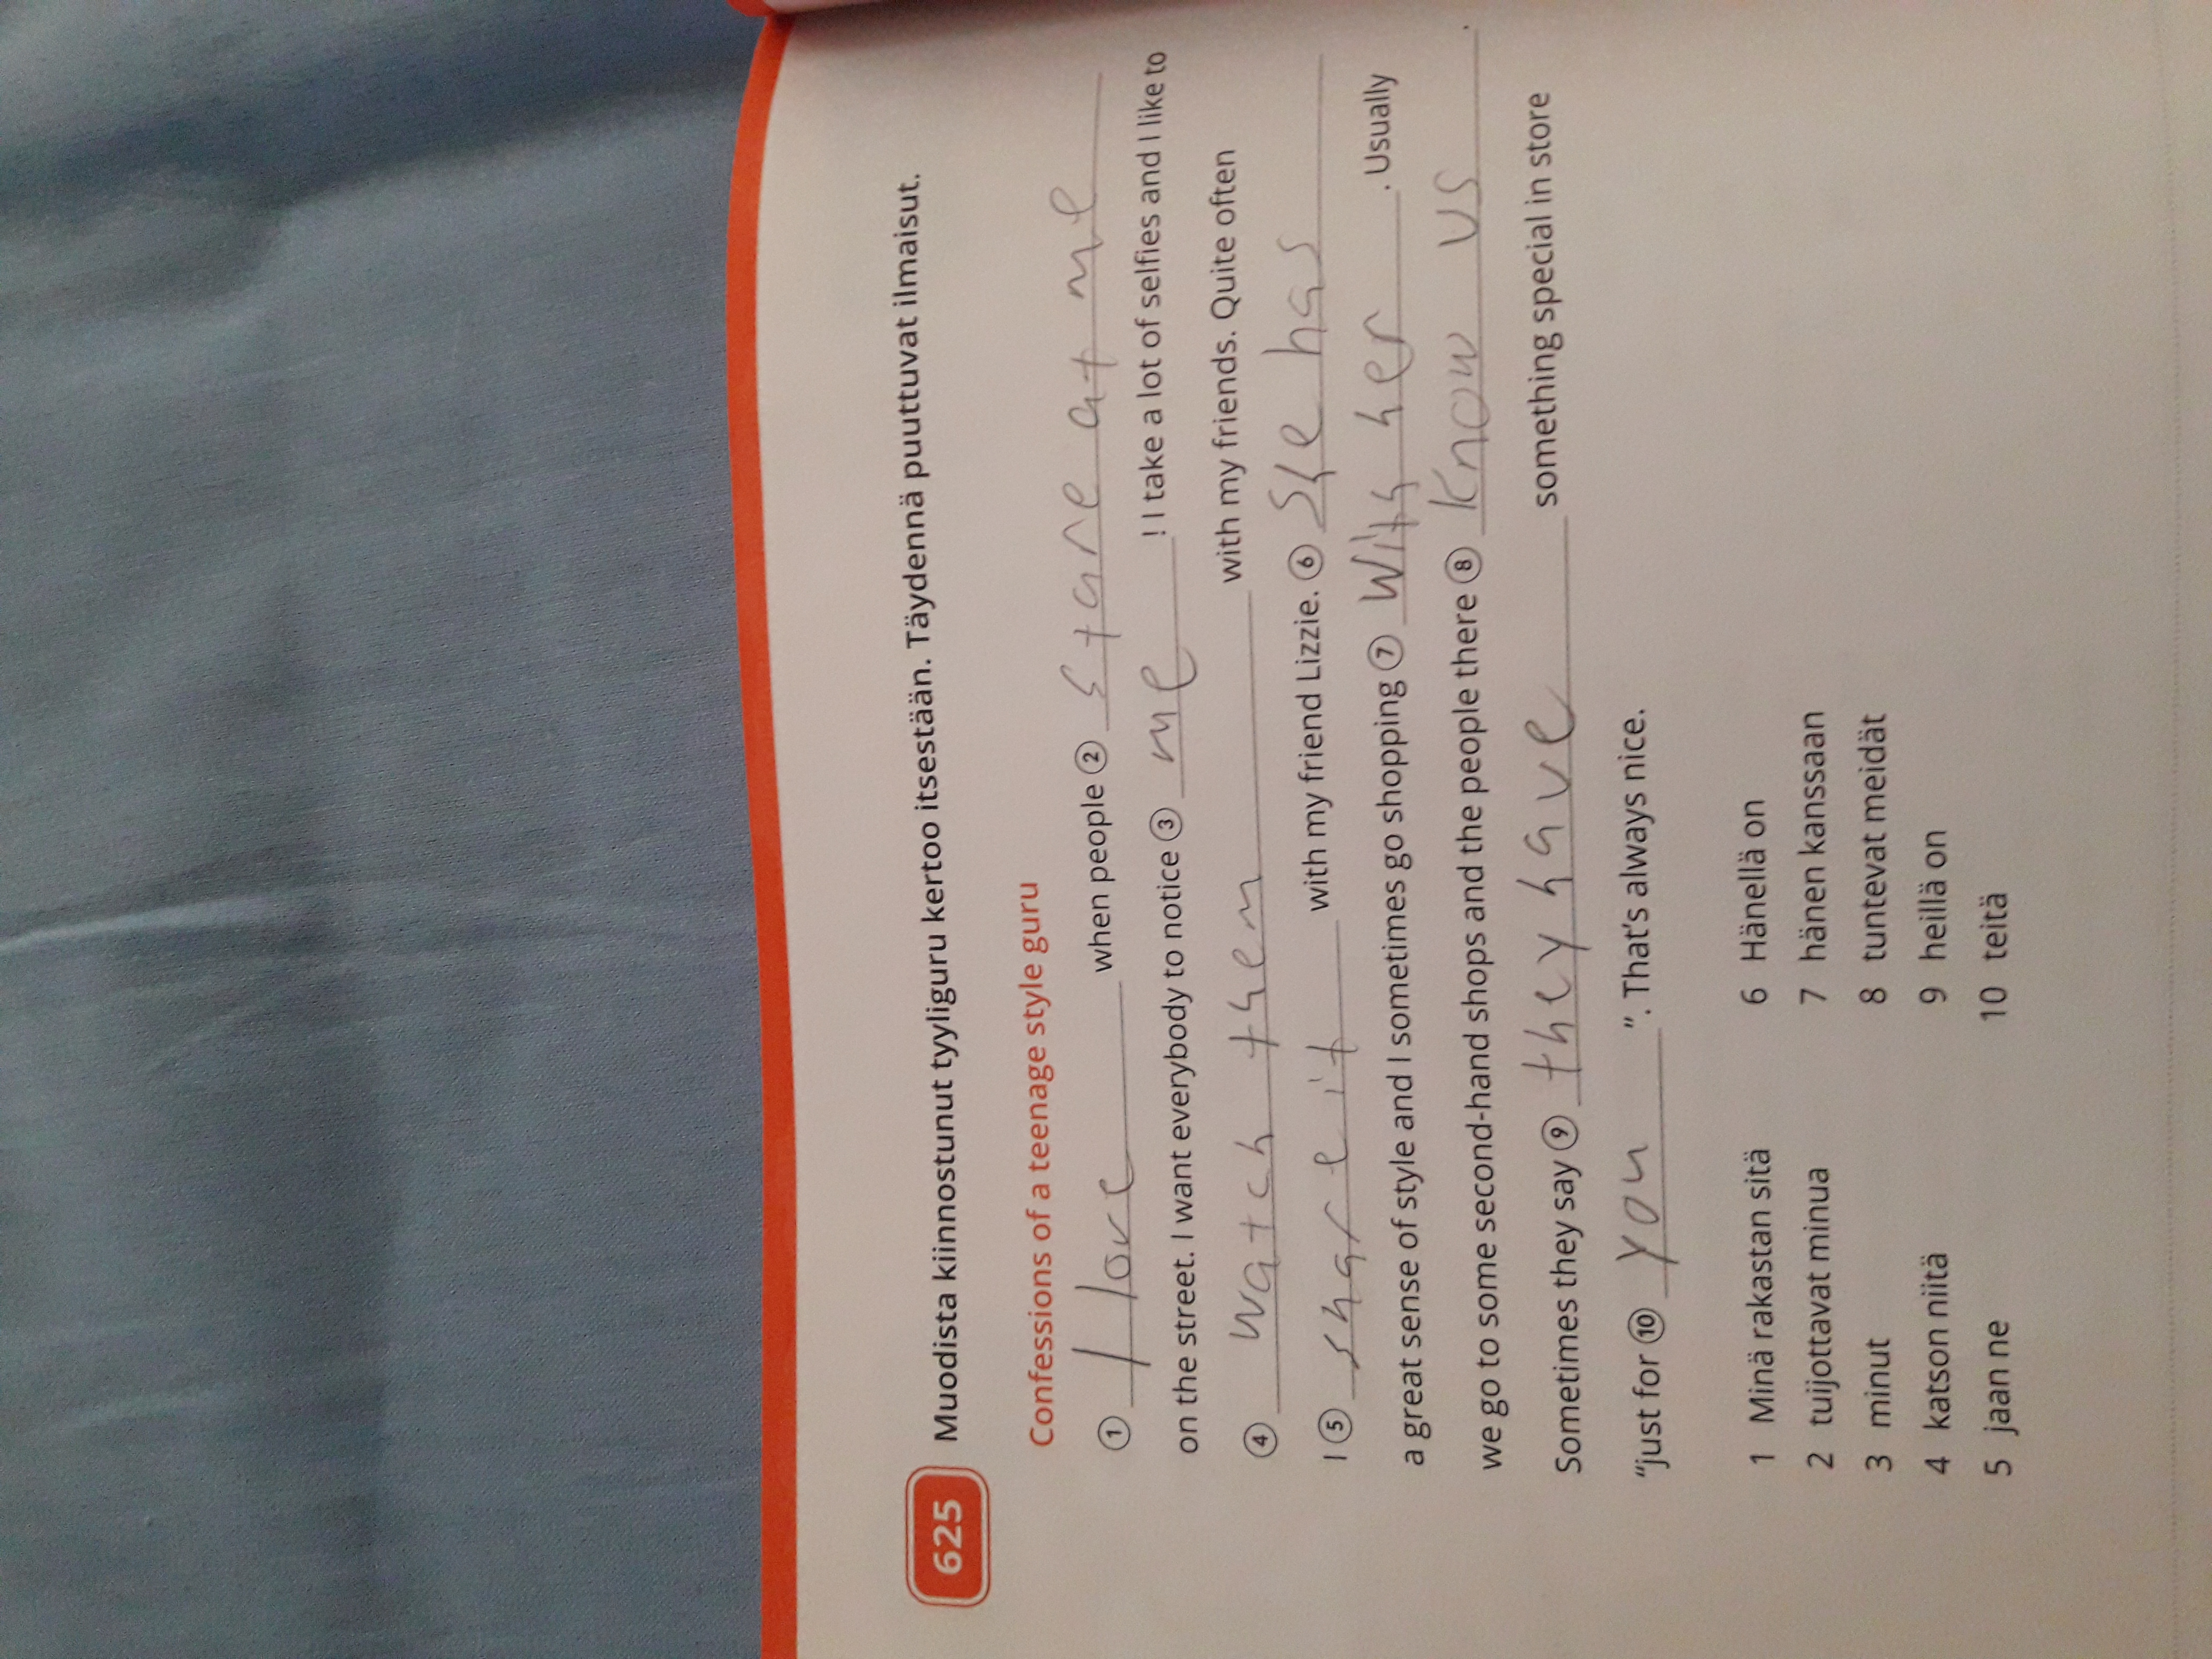 625 Muodista kiinnostunut tyyliguru kertoo itsestään. Täydennä puuttuvat ilmaisut.
Confessions of a teenage style guru
① I love when people ② stare at me
on the street. I want everybody to notice ③ me ! I take a lot of selfies and I like to
④ watch them with my friends. Quite often
I ⑤ share it with my friend Lizzie. ⑥ She has
a great sense of style and I sometimes go shopping ⑦ with her . Usually
we go to some second-hand shops and the people there ⑧ know us .
Sometimes they say ⑨ they have something special in store
“just for ⑩ you ”. That's always nice.
1 Minä rakastan sitä
2 tuijottavat minua
3 minut
4 katson niitä
5 jaan ne
6 Hänellä on
7 hänen kanssaan
8 tuntevat meidät
9 heillä on
10 teitä